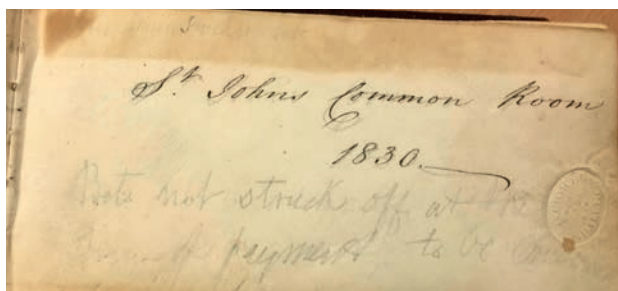 St Johns Common Room
1830.
Bets not struck off at the
of payment to be